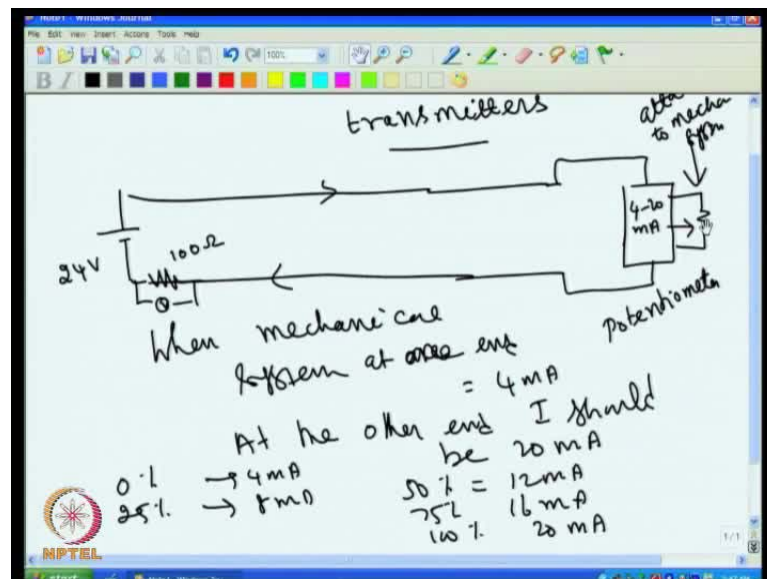 Note1 - Windows Journal
File Edit View Insert Actions Tools Help
100%
B I
transmitters
atta
to mecha
system
4-20
mA
24V
100Ω
Potentiometer
When mechanical
System at one end
= 4mA
At the other end I should
be 20 mA
0% → 4mA
25% → 8mA
50% = 12mA
75% 16mA
100% 20mA
NPTEL
1/1
start